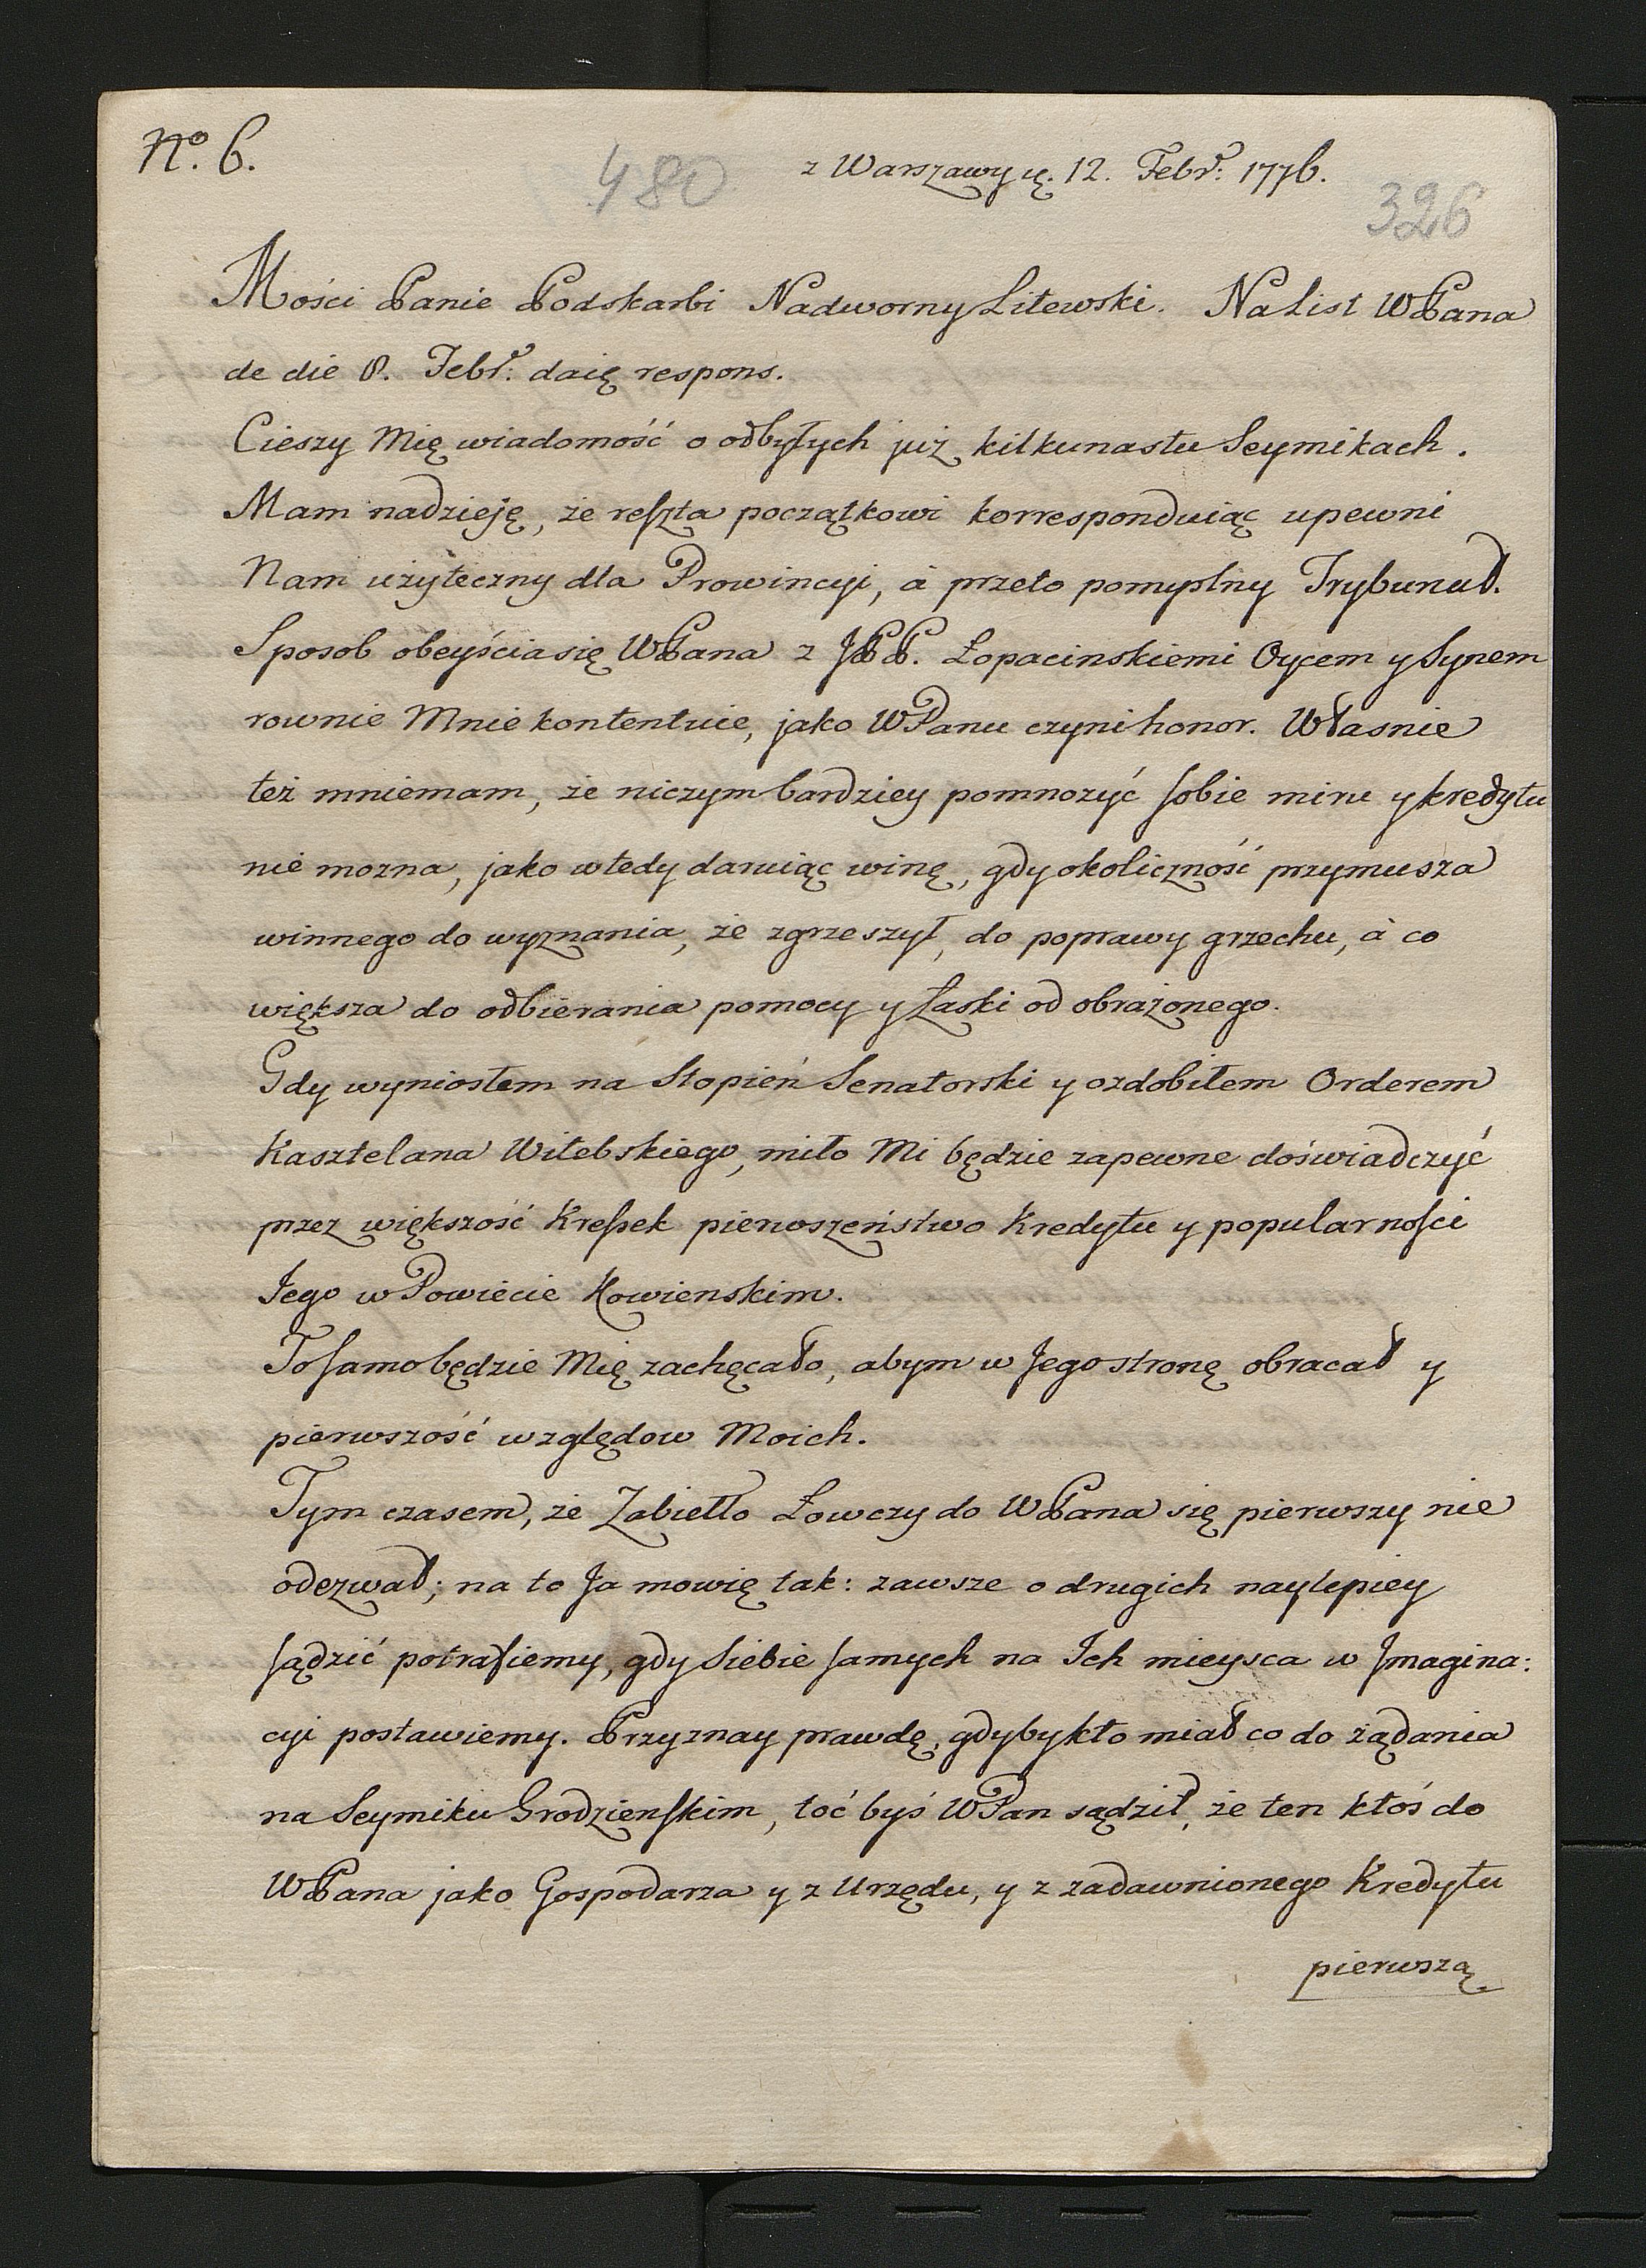 No. 6.
480
z Warszawy ę. 12. Febr: 1776.
326
Mości Panie Podskarbi Nadworny Litewski. Na List WPana
de die 8. Febr: daię respons.
Cieszy Mię wiadomość o odbyłych już kilkunastu Seymikach.
Mam nadzieję, że reszta początkowi korresponduiąc upewni
Nam użyteczny dla Prowincyi, á przeto pomyslny Trybunał.
Sposob obeyścia się WPana z JPP. Łopacinskiemi Oycem y Synem
rownie Mnie kontentuie, jako WPanu czyni honor. Własnie
też mniemam, że niczym bardziey pomnożyć sobie miru y kredytu
nie mozna, jako wtedy daruiąc winę, gdy okoliczność przymusza
winnego do wyznania, że zgrzeszył, do poprawy grzechu, á co
większa do odbierania pomocy y Łaski od obrażonego.
Gdy wyniosłem na Stopień Senatorski y ozdobiłem Orderem
Kasztelana Witebskiego, miło Mi będzie zapewne doświadczyć
przez większość Kresek pierwszeństwo Kredytu y popularności
Jego w Powiecie Kowienskim.
To samo będzie Mię zachęcało, abym w Jego stronę obracał y
pierwszość względow Moich.
Tym czasem, że Zabiełło Łowczy do WPana się pierwszy nie
odezwał; na to Ja mowię tak: zawsze o drugich naylepiey
sądzić potrafiemy, gdy Siebie samych na Ich mieysca w Jmagina:
cyi postawiemy. Przyznay prawdę, gdyby kto miał co do żądania
na Seymiku Grodzienskim, toć byś WPan sądził, że ten ktoś do
WPana jako Gospodarza y z Urzędu, y z zadawnionego Kredytu
pierwszą